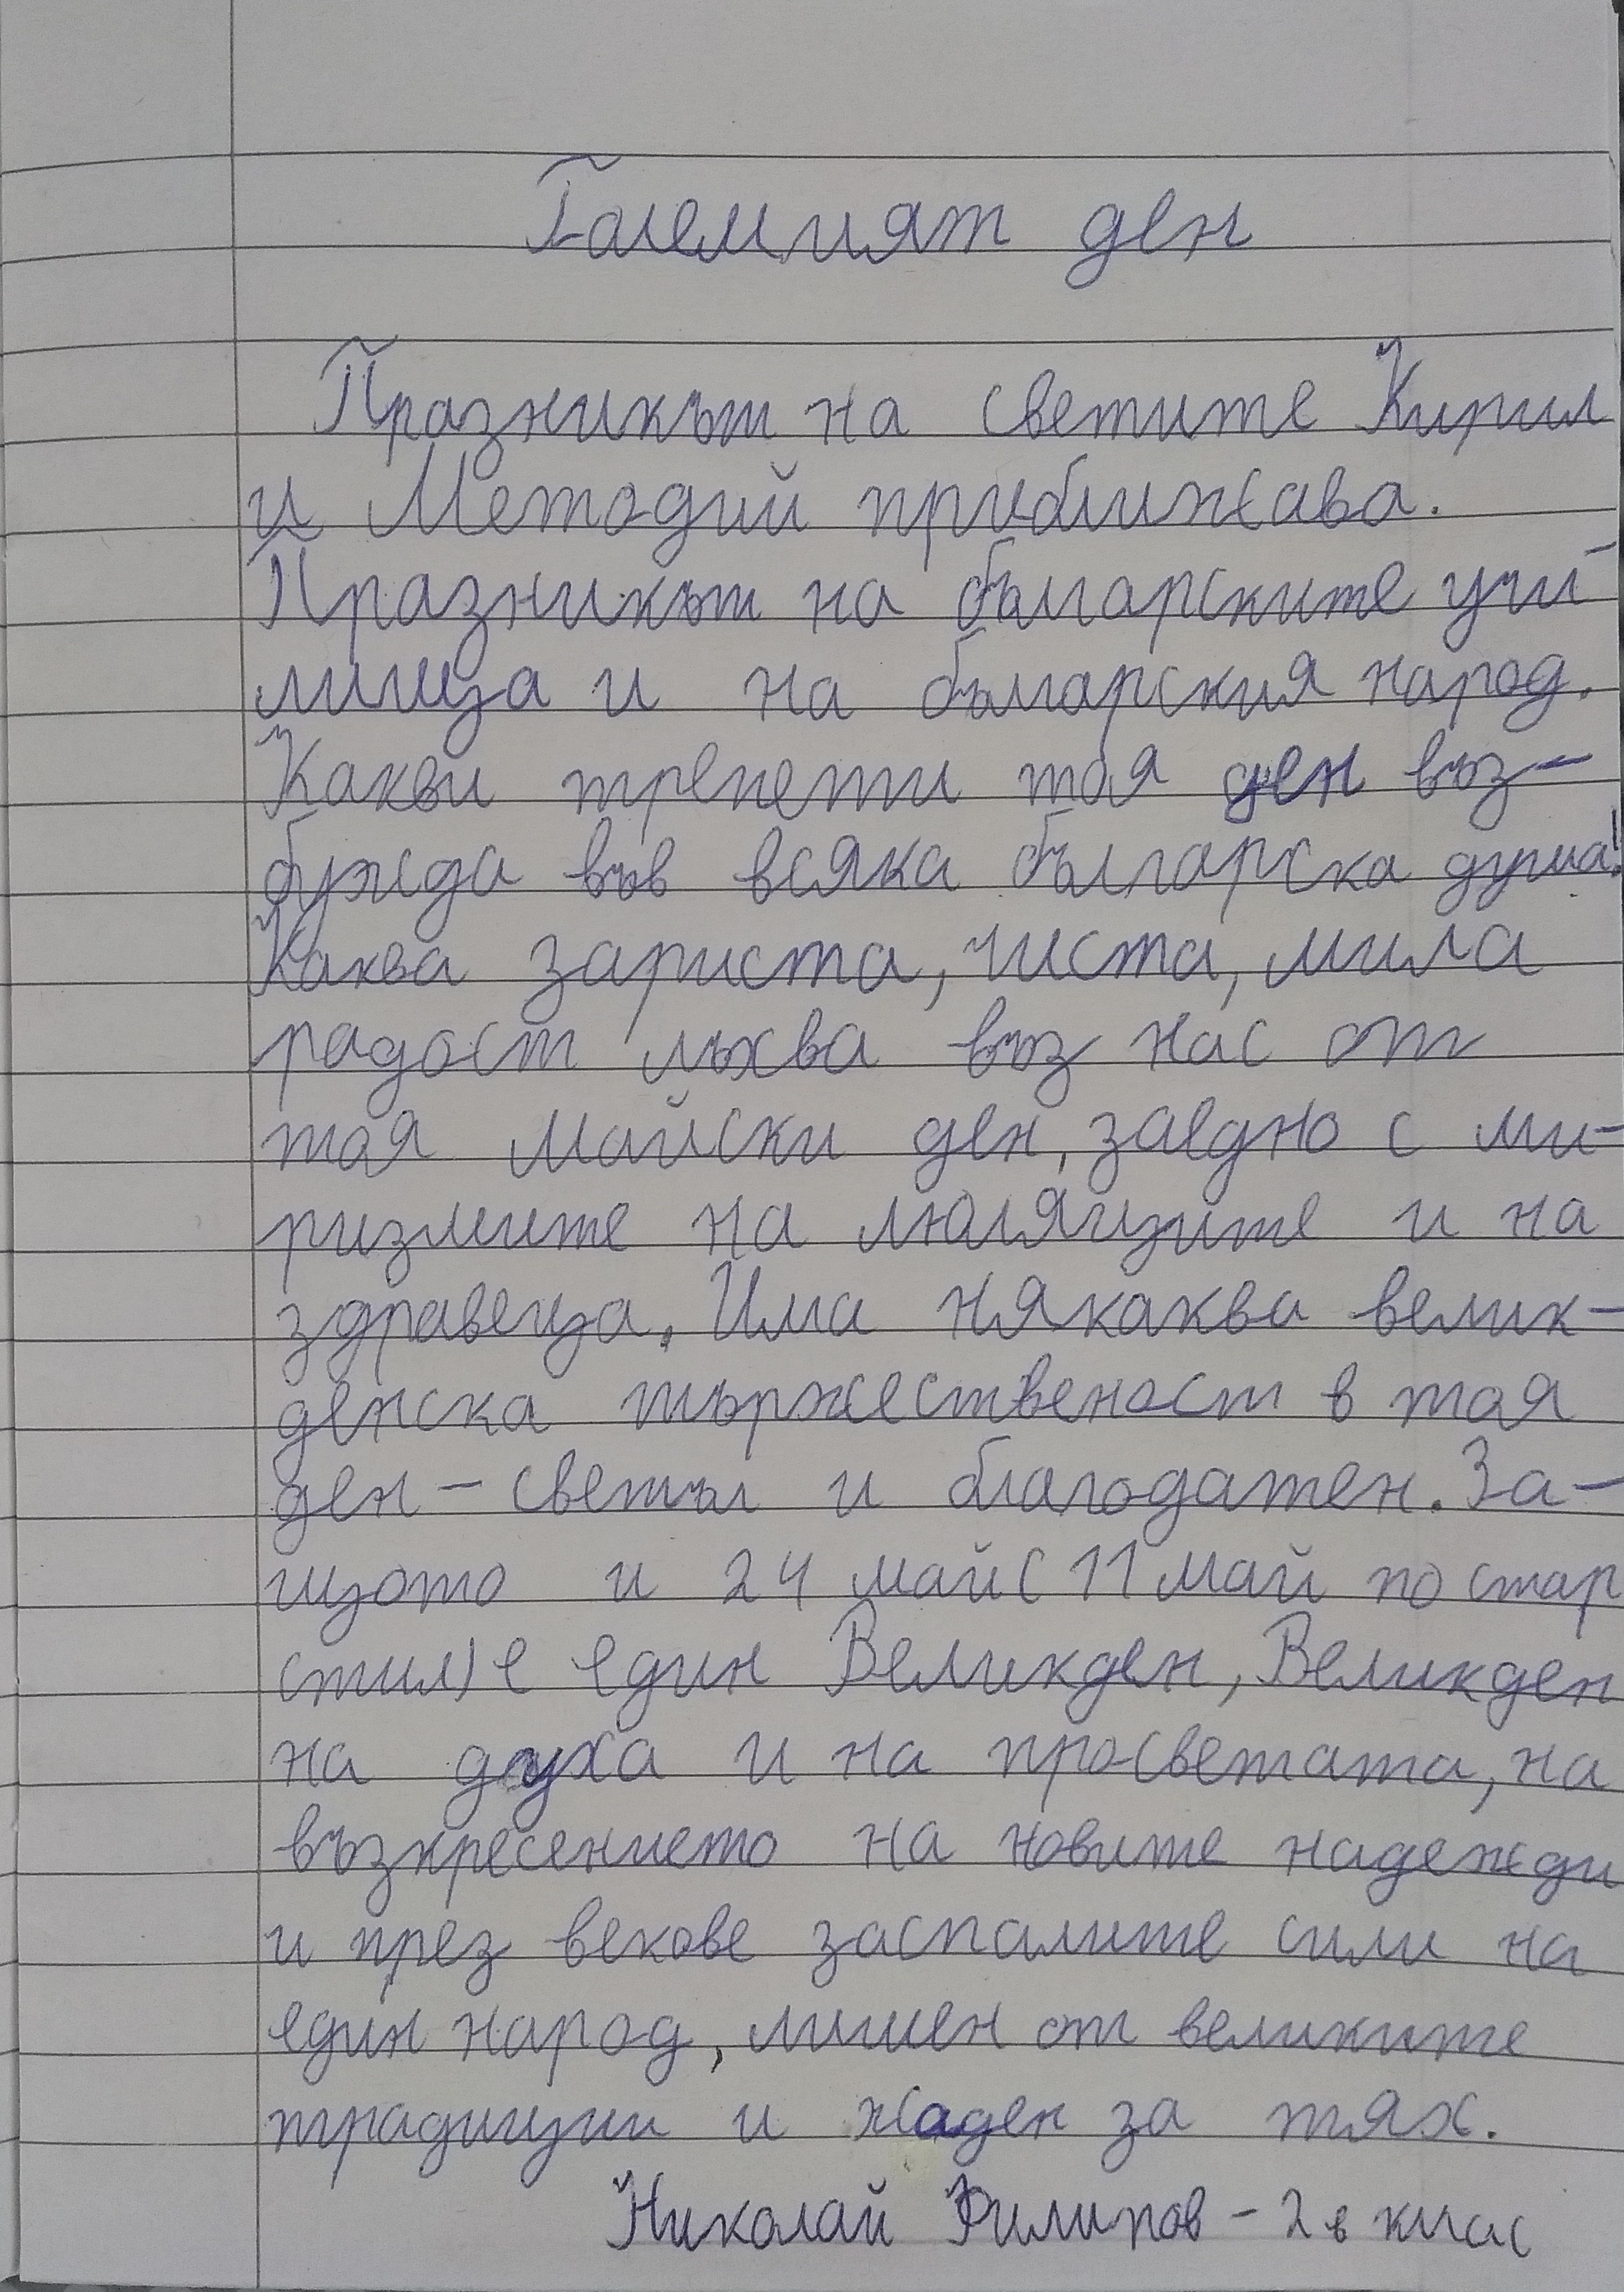 Големият ден
Празникът на светите Кирил
и Методий приближава.
Празникът на българските учи-
лища и на българския народ.
Какви трепети тоя ден въз-
бужда във всяка българска душа!
Каква зариста, чиста, мила
радост лъхва въз нас от
тоя майски ден, заедно с ми-
ризмите на люляците и на
здравеца. Има някаква велик-
денска тържественост в тоя
ден - светъл и благодатен. За-
щото и 24 май (11 май по стар
стил) е един Великден, Великден
на духа и на просветата, на
възкресението на новите надежди
и през векове заспалите сили на
един народ, лишен от великите
традиции и жаден за тях.
Николай Филипов - 2 в клас